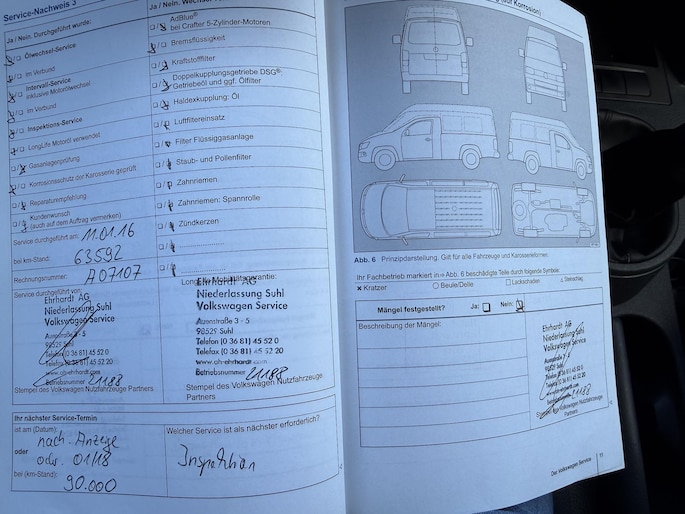 Service-Nachweis 3
Ja / Nein, Durchgeführt wurde:
Ölwechsel-Service
im Verbund
Intervall-Service
inklusive Motorölwechsel
im Verbund
Inspektions-Service
LongLife Motoröl verwendet
Gasanlagenprüfung
Korrosionsschutz der Karosserie geprüft
Reparaturempfehlung
Kundenwunsch
(auch auf dem Auftrag vermerken)
Service durchgeführt am: 11.01.16
bei km-Stand: 63592
Rechnungsnummer: A07107
Service durchgeführt von:
Ehrhardt AG
Niederlassung Suhl
Volkswagen Service
Auenstraße 3 - 5
98529 Suhl
Telefon (0 36 81) 45 52 0
Telefax (0 36 81) 45 52 20
www.ah-ehrhardt.com
Betriebsnummer 21188
Stempel des Volkswagen Nutzfahrzeuge
Partners
Ja / Nein,
AdBlue®
bei Crafter 5-Zylinder-Motoren
Bremsflüssigkeit
Kraftstofffilter
Doppelkupplungsgetriebe DSG®:
Getriebeöl und ggf. Ölfilter
Haldexkupplung: Öl
Luftfiltereinsatz
Filter Flüssiggasanlage
Staub- und Pollenfilter
Zahnriemen
Zahnriemen: Spannrolle
Zündkerzen
LongLife Mobilitätsgarantie:
Ehrhardt AG
Niederlassung Suhl
Volkswagen Service
Auenstraße 3 - 5
98529 Suhl
Telefon (0 36 81) 45 52 0
Telefax (0 36 81) 45 52 20
www.ah-ehrhardt.com
Betriebsnummer 21188
Stempel des Volkswagen Nutzfahrzeuge
Partners
Ihr nächster Service-Termin
ist am (Datum): nach Anzeige
oder oder 01/18
bei (km-Stand): 90.000
Welcher Service ist als nächster erforderlich?
Inspektion
auf Korrosion)
Abb. 6 Prinzipdarstellung. Gilt für alle Fahrzeuge und Karosserieformen.
Ihr Fachbetrieb markiert in ⇒ Abb. 6 beschädigte Teile durch folgende Symbole:
× Kratzer ○ Beule/Delle □ Lackschaden △ Steinschlag
Mängel festgestellt? Ja: Nein:
Beschreibung der Mängel:
Ehrhardt AG
Niederlassung Suhl
Volkswagen Service
Auenstraße 3 - 5
98529 Suhl
21188
Partners
Der Volkswagen Service 11